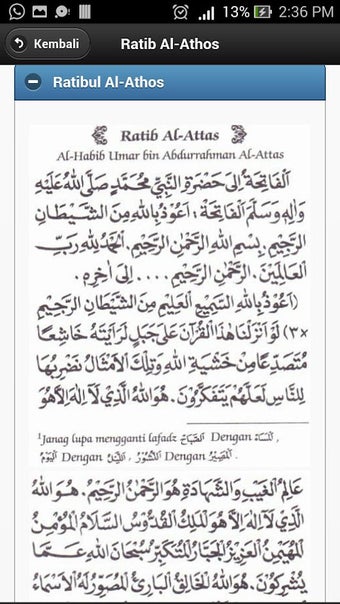 13% 2:36 PM
Kembali
Ratib Al-Athos
Ratibul Al-Athos
Ratib Al-Attas
Al-Habib Umar bin Abdurrahman Al-Attas
اَلْفَاتِحَةُ إِلَى حَضْرَةِ النَّبِيِّ مُحَمَّدٍ صَلَّى اللهُ عَلَيْهِ
وَاٰلِهِ وَسَلَّمَ اَلْفَاتِحَةَ : اَعُوْذُ بِاللهِ مِنَ الشَّيْطَانِ
الرَّجِيْمِ. بِسْمِ اللهِ الرَّحْمٰنِ الرَّحِيْمِ. اَلْحَمْدُ لِلّٰهِ رَبِّ
الْعَالَمِيْنَ. الرَّحْمٰنِ الرَّحِيْمِ .... اِلَى اٰخِرِهِ.
(اَعُوْذُ بِاللهِ السَّمِيْعِ الْعَلِيْمِ مِنَ الشَّيْطَانِ الرَّجِيْمِ
×٣) لَوْ اَنْزَلْنَا هٰذَا الْقُرْاٰنَ عَلَى جَبَلٍ لَرَاَيْتَهُ خَاشِعًا
مُتَصَدِّعًا مِنْ خَشْيَةِ اللهِ وَتِلْكَ الْاَمْثَالُ نَضْرِبُهَا
لِلنَّاسِ لَعَلَّهُمْ يَتَفَكَّرُوْنَ. هُوَ اللهُ الَّذِيْ لَا اِلٰهَ اِلَّا هُوَ
¹Janag lupa mengganti lafadz اَلصَّبَاحَ Dengan اَلْمَسَاءَ ,
اَلْيَوْمَ Dengan اَللَّيْلَ , اَلنُّشُوْرُ Dengan اَلْمَصِيْرُ .
عَالِمُ الْغَيْبِ وَالشَّهَادَةِ هُوَ الرَّحْمٰنُ الرَّحِيْمُ. هُوَ اللهُ
الَّذِيْ لَا اِلٰهَ اِلَّا هُوَ اَلْمَلِكُ الْقُدُّوْسُ السَّلَامُ الْمُؤْمِنُ
الْمُهَيْمِنُ الْعَزِيْزُ الْجَبَّارُ الْمُتَكَبِّرُ سُبْحَانَ اللهِ عَمَّا
يُشْرِكُوْنَ. هُوَ اللهُ الْخَالِقُ الْبَارِئُ الْمُصَوِّرُ لَهُ الْاَسْمَاءُ